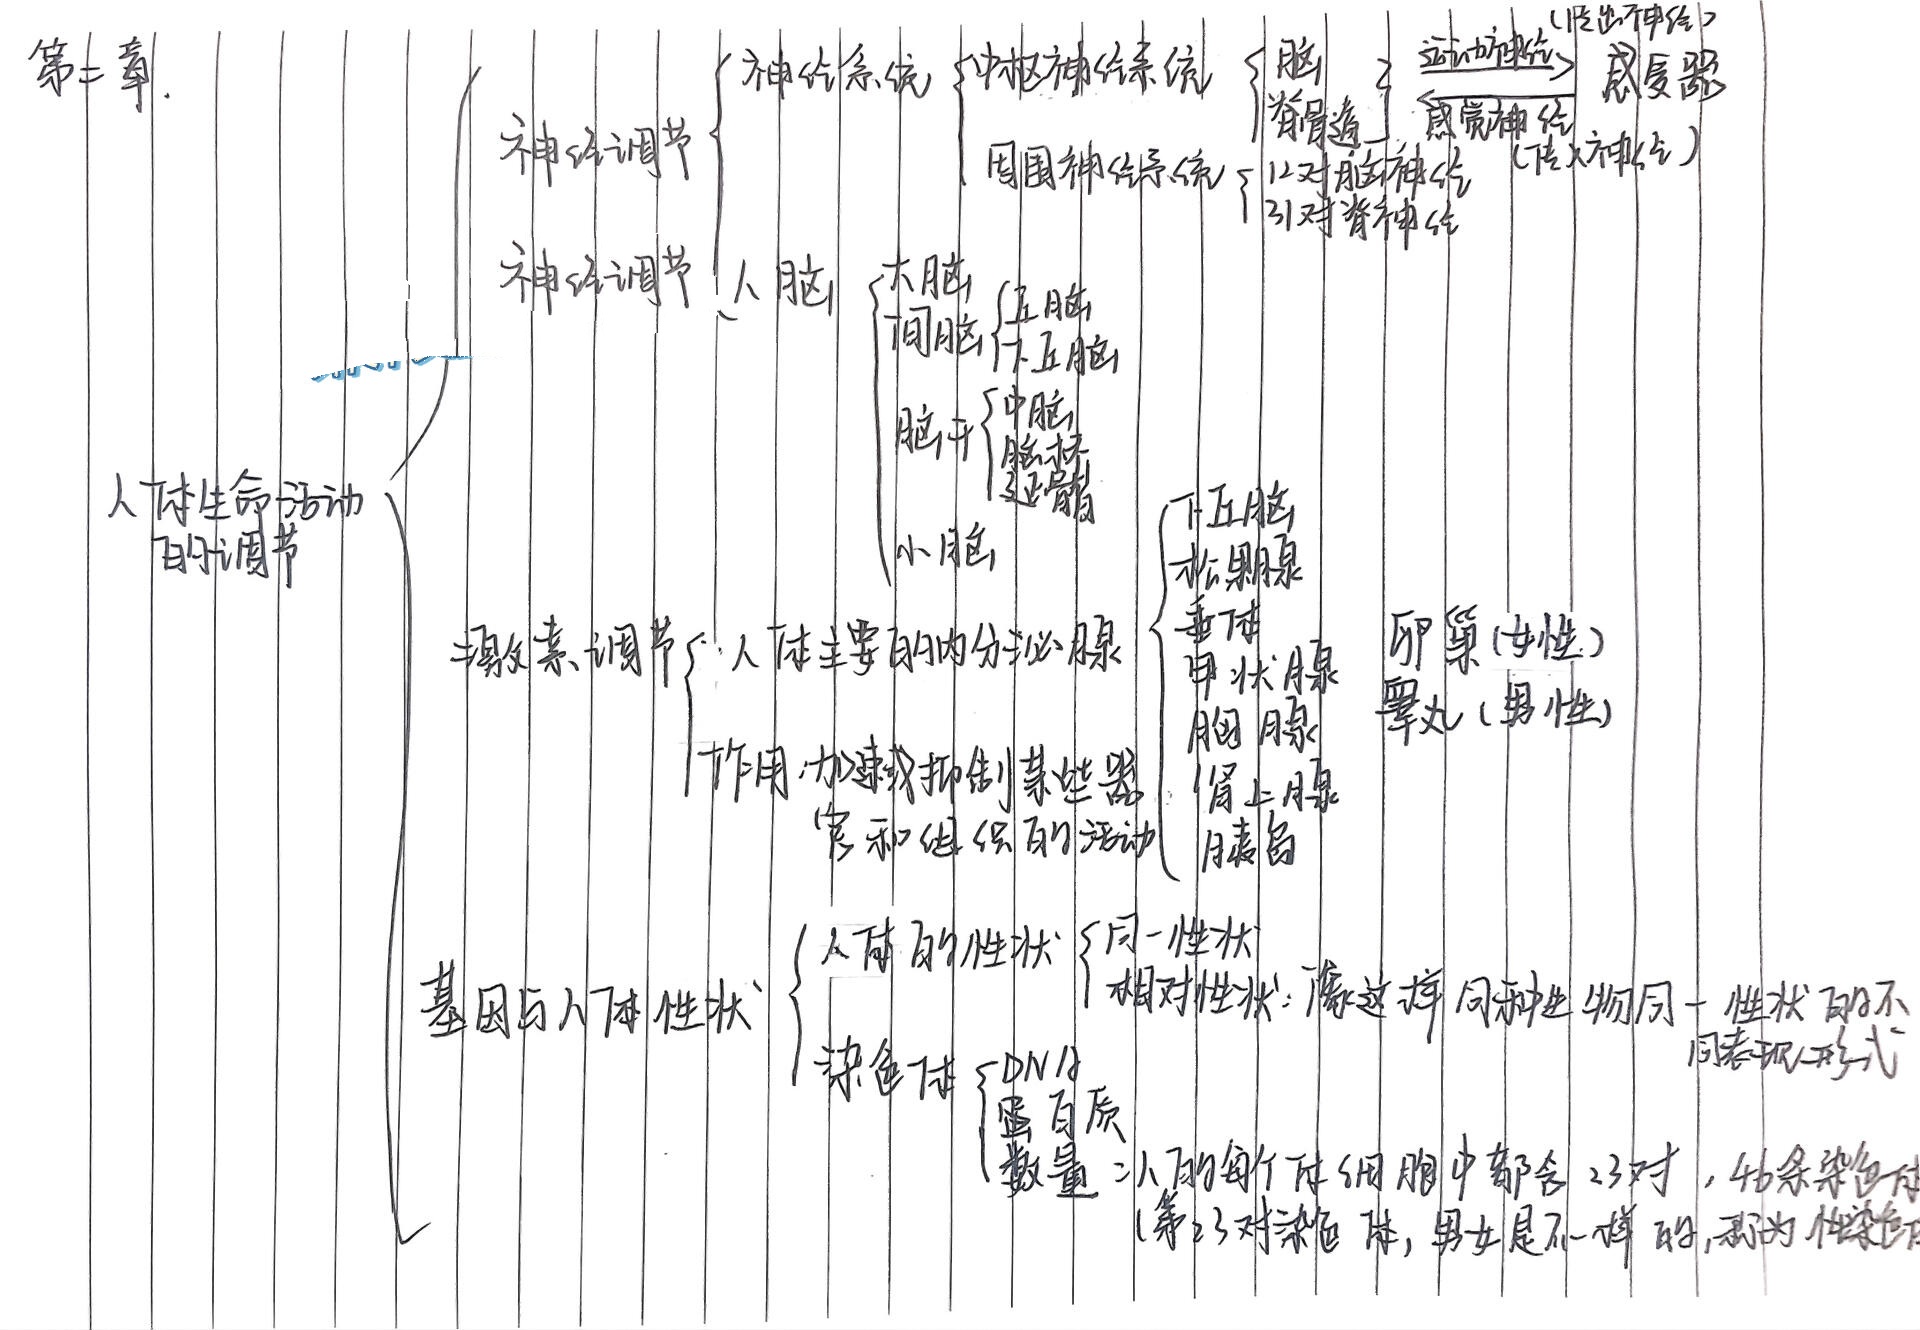 第二章.
神经调节
神经系统
中枢神经系统
脑
脊骨遀
运动神经
(传出神经)
感受器
感觉神经
(传入神经)
周围神经系统
12对脑神经
31对脊神经
神经调节
人脑
大脑
间脑
丘脑
下丘脑
脑干
中脑
脑桥
延髓
小脑
人体生命活动
的调节
激素调节
人体主要的内分泌腺
下丘脑
松果腺
垂体
甲状腺
胸腺
肾上腺
胰岛
卵巢(女性)
睾丸(男性)
作用:加速或抑制某些器
官和组织的活动
基因与人体性状
人体的性状
同一性状
相对性状:像这样同种生物同一性状的不
同表现形式
染色体
DNA
蛋白质
数量:人的每个体细胞中都含23对,46条染色体
(第23对染色体,男女是不一样的,称为性染色体